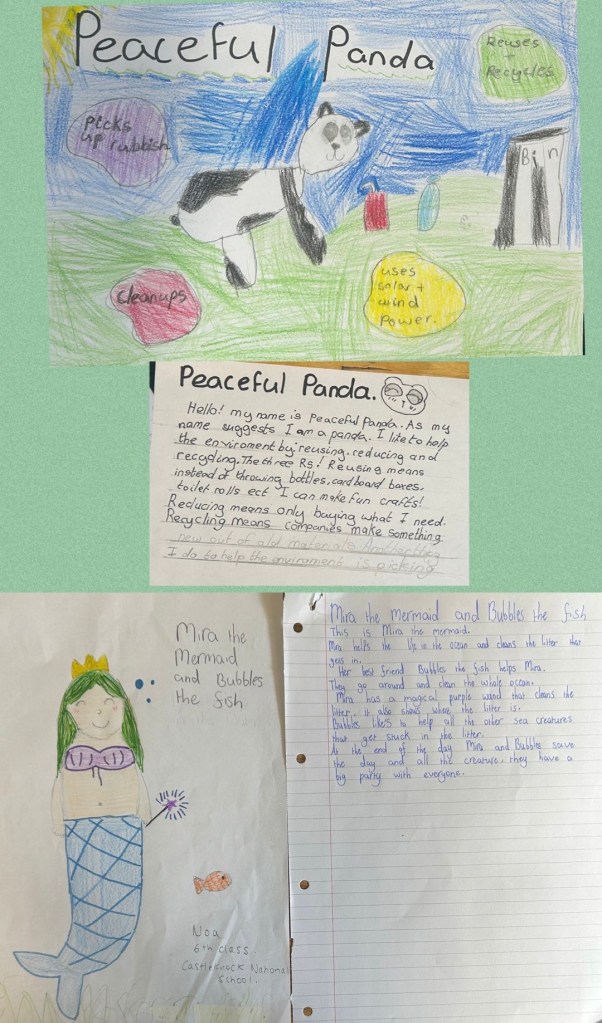 Peaceful Panda
Reuses
+
Recycles
Picks
up rubbish
Bin
Cleanups
uses
solar +
wind
power.
Peaceful Panda.
Hello! my name is Peaceful Panda. As my
name suggests I am a panda. I like to help
the enviroment by: reusing, reducing and
recycling. The three Rs! Reusing means
instead of throwing bottles, cardboard boxes,
toilet rolls ect I can make fun crafts!
Reducing means only buying what I need.
Recycling means companies make something
new out of old materials. Another thing
I do to help the enviroment is picking
Mira the
Mermaid
and Bubbles
the fish
Noa
6th class
Castleknock National
School.
Mira the mermaid and Bubbles the fish
This is Mira the mermaid.
Mira helps the life in the ocean and cleans the litter that
gets in.
Her best friend Bubbles the fish helps Mira.
They go around and clean the whole ocean.
Mira has a magical purple wand that cleans the
litter. It also shows where the litter is.
Bubbles likes to help all the other sea creatures
that get stuck in the litter.
At the end of the day Mira and Bubbles save
the day and all the creature. they have a
big party with everyone.